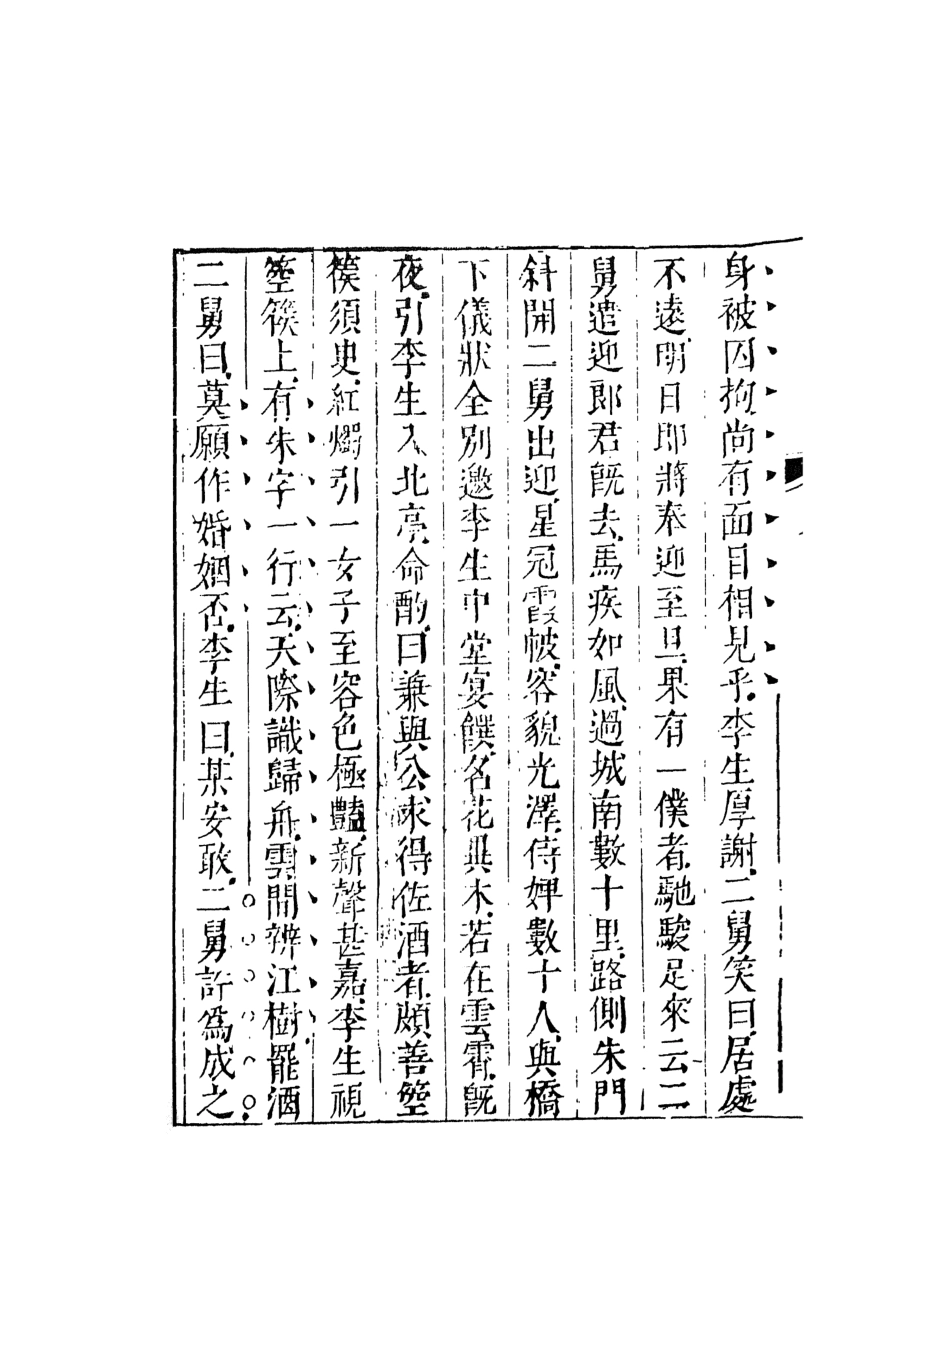 身被囚拘尚有面目相見乎李生厚謝二舅笑曰居處
不遠明日即將奉迎至旦果有一僕者馳駿足來云二
舅遣迎郎君旣去馬疾如風過城南數十里路側朱門
斜開二舅出迎星冠霞帔容貌光澤侍婢數十人與橋
下儀狀全別邀李生中堂宴饌名花異木若在雲霄旣
夜引李生入北亭命酌曰兼與公求得佐酒者頗善箜
篌須臾紅燭引一女子至容色極豔新聲甚嘉李生視
箜篌上有朱字一行云天際識歸舟雲間辨江樹罷酒
二舅曰莫願作婚姻否李生曰某安敢二舅許爲成之